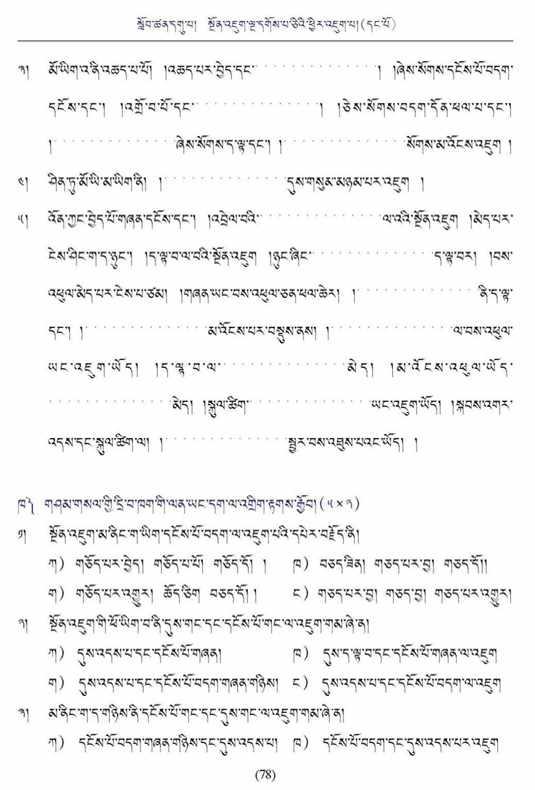 སློབ་ཚན་དགུ་པ། སྔོན་འཇུག་ལྔ་དགོས་པ་ཅིའི་ཕྱིར་འཇུག་པ། (དང་པོ)
༣། མོ་ཡིག་འ་ནི་འཆད་པ་པོ། །འཆད་པར་བྱེད་དང་ · · · · · · · · · · · · · །ཞེས་སོགས་དངོས་པོ་བདག་
དངོས་དང་། །འགྲོ་བ་པོ་དང་ · · · · · · · · · · · · · །ཅེས་སོགས་བདག་དོན་ཕལ་པ་དང་།
། · · · · · · · · · · · · · ཞེས་སོགས་ད་ལྟ་དང་། · · · · · · · · · · · · · སོགས་མ་འོངས་འཇུག །
༤། ཤིན་ཏུ་མོ་ཡི་མ་ཡིག་ནི། · · · · · · · · · · · · · དུས་གསུམ་མཉམ་པར་འཇུག །
༥། འོན་ཀྱང་བྱེད་པོ་གཞན་དངོས་དང་། །འབྲེལ་བའི་ · · · · · · · · · · · · · ལ་འའི་སྔོན་འཇུག །མེད་པར་
ངེས་ཤིང་ག་ད་ཉུང་། །ད་ལྟ་བ་ལ་བའི་སྔོན་འཇུག །ཉུང་ཞིང་ · · · · · · · · · · · · · ད་ལྟ་བར། །བས་
འཕུལ་མེད་པར་ངེས་པ་ཙམ། །གཞན་ཡང་བས་འཕུལ་ཅན་ཕལ་ཆེར། · · · · · · · · · · · · · ནི་ད་ལྟ་
དང་། · · · · · · · · · · · · · མ་འོངས་པར་བསྡུས་ནས། · · · · · · · · · · · · · ལ་བས་འཕུལ་
ཡང་འཇུག་ཡོད། །ད་ལྟ་བ་ལ་ · · · · · · · · · · · · · མེད། །མ་འོངས་འཕུལ་ཡོད་
· · · · · · · · · · · · · མེད། །སྐུལ་ཚིག་ · · · · · · · · · · · · · ཡང་འཇུག་ཡོད། །སྐབས་འགར་
འདས་དང་སྐུལ་ཚིག་ལ། · · · · · · · · · · · · · སྦྱར་བས་འཐུས་པའང་ཡོད། །
ཁ༽ གཤམ་གསལ་གྱི་དྲི་བ་ཁག་གི་ལན་ཡང་དག་ལ་འགྲིག་རྟགས་རྒྱོབ། (༥×༢)
༡། སྔོན་འཇུག་མ་ནིང་ག་ཡིག་དངོས་པོ་བདག་ལ་འཇུག་པའི་དཔེར་བརྗོད་ནི།
ཀ) གཅོད་པར་བྱེད། གཅོད་པ་པོ། གཅོད་དོ། ། ཁ) བཅད་ཟིན། གཅད་པར་བྱ། གཅད་དོ།།
ག) གཅོད་པར་འགྱུར། ཆོད་ཅིག བཅད་དོ། ། ང) གཅད་པར་བྱ། གཅད་བྱ། གཅད་པར་འགྱུར།
༢། སྔོན་འཇུག་གི་ཕོ་ཡིག་བ་ནི་དུས་གང་དང་དངོས་པོ་གང་ལ་འཇུག་གམ་ཞེ་ན།
ཀ) དུས་འདས་པ་དང་དངོས་པོ་གཞན། ཁ) དུས་ད་ལྟ་བ་དང་དངོས་པོ་གཞན་ལ་འཇུག
ག) དུས་འདས་པ་དང་དངོས་པོ་བདག་གཞན་གཉིས། ང) དུས་འདས་པ་དང་དངོས་པོ་བདག་ལ་འཇུག
༣། མ་ནིང་ག་ད་གཉིས་ནི་དངོས་པོ་གང་དང་དུས་གང་ལ་འཇུག་གམ་ཞེ་ན།
ཀ) དངོས་པོ་བདག་གཞན་གཉིས་དང་དུས་འདས་པ། ཁ) དངོས་པོ་བདག་དང་དུས་འདས་པར་འཇུག
(78)